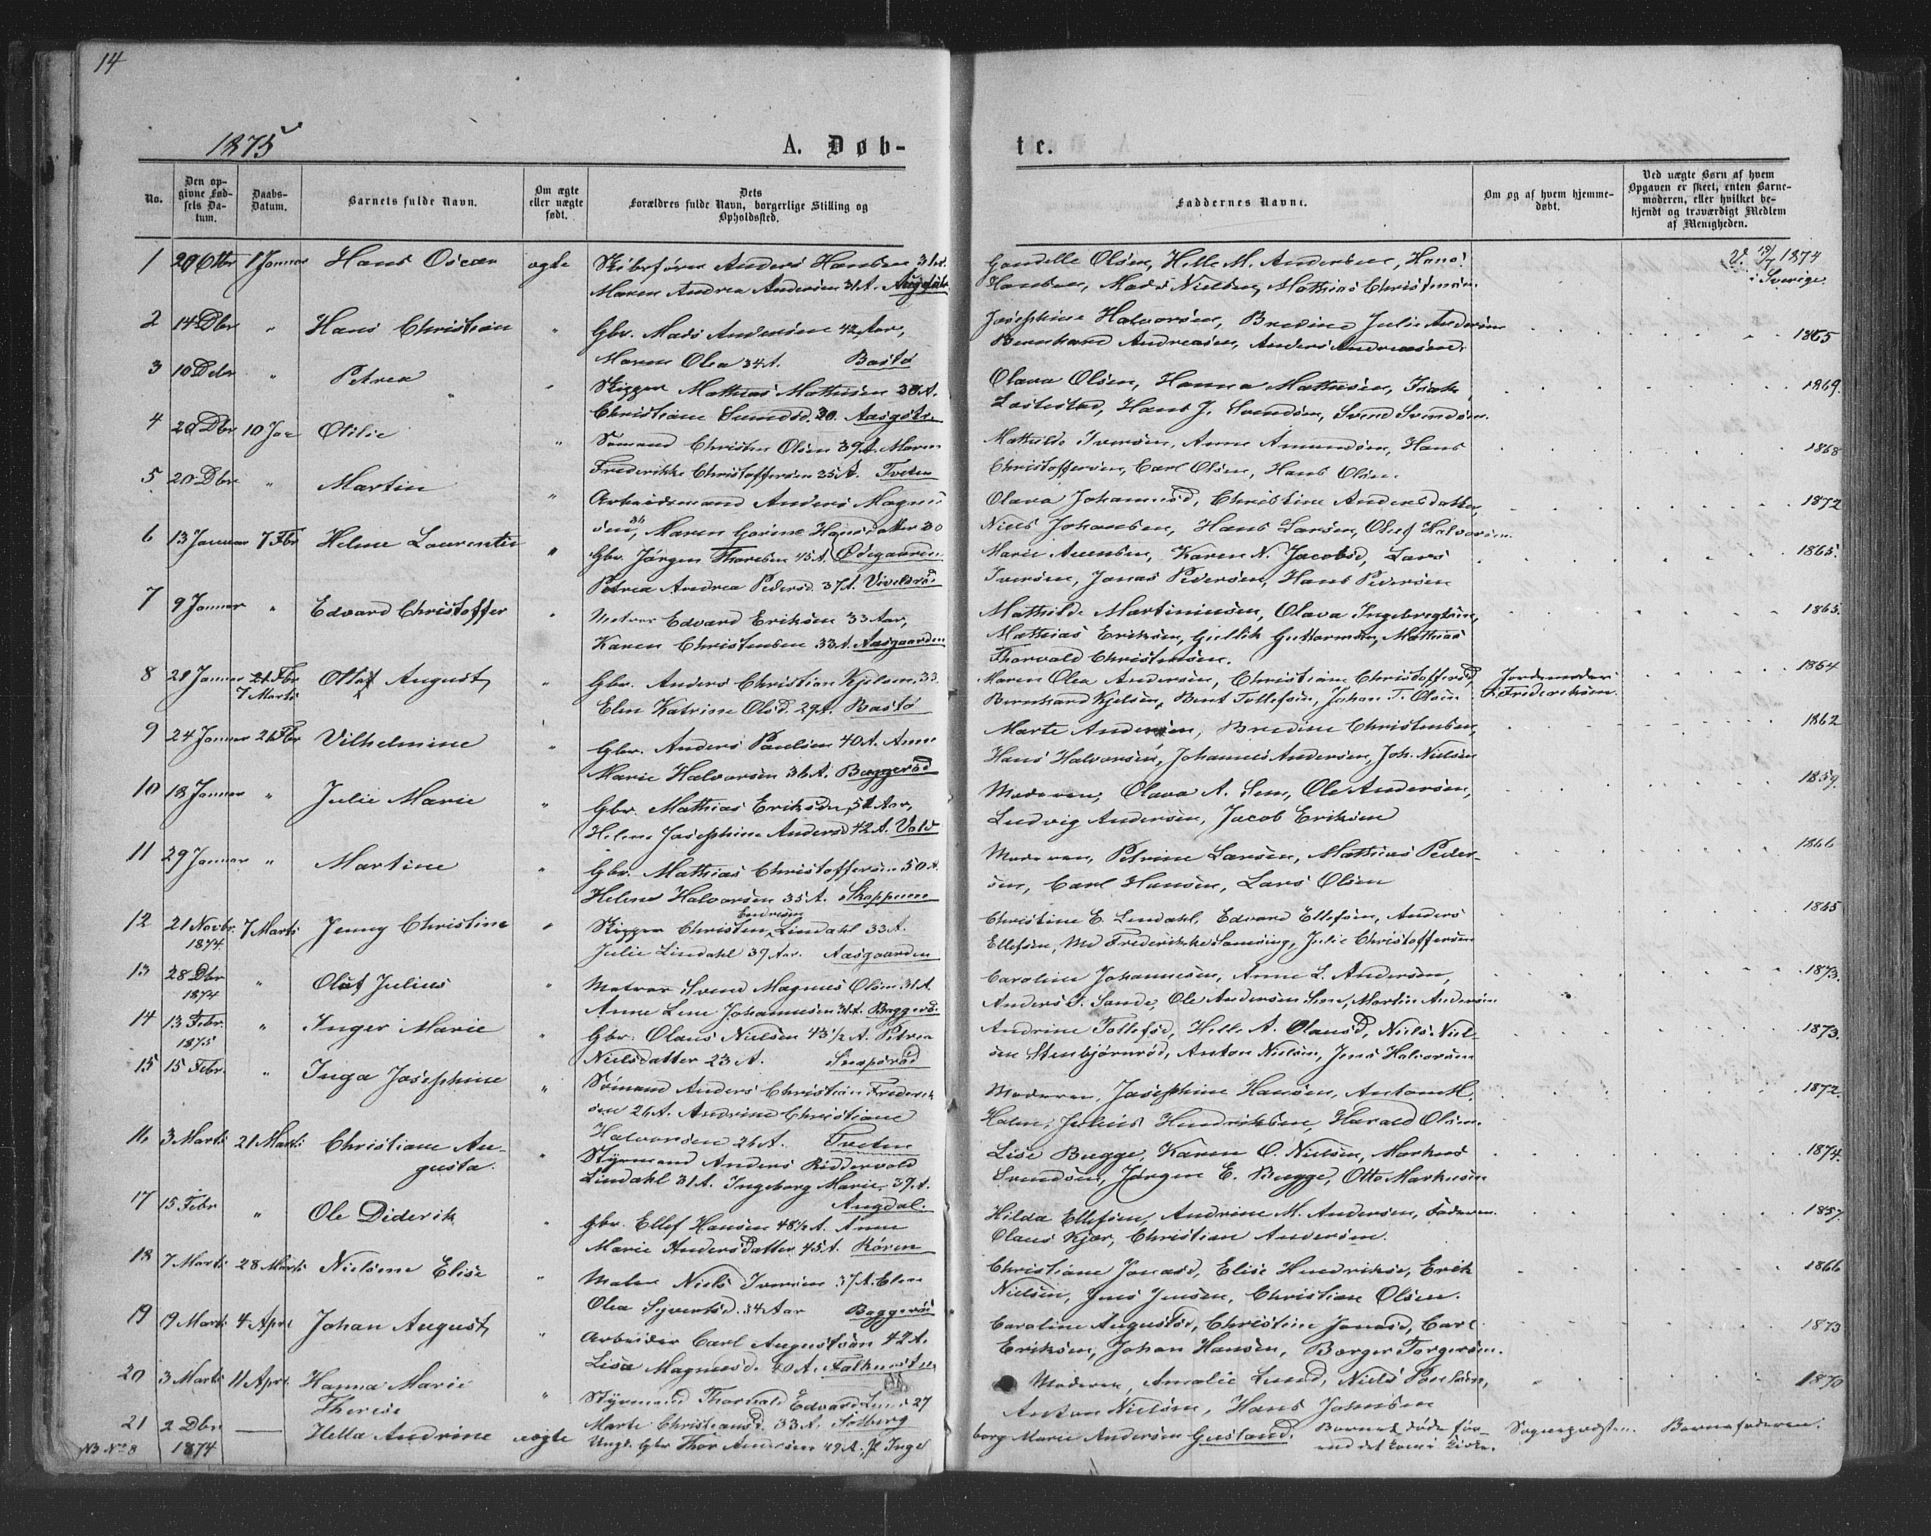 14
1875
A. Døb-
te.
No.
Den op-
givne Fød-
sels Da-
tum.
Daabs-
Datum.
Barnets fulde Navn.
Om ægte
eller uægte
født.
Dets
Forældres fulde Navn, borgerlige Stilling og
Opholdssted.
Faddernes Navne.
Om og af hvem hjemme-
døbt.
Ved uægte Børn af hvem
Opgaven er skeet, enten Barne-
moderen, eller hvilket be-
kjendt og troværdigt Medlem
af Menigheden.
1 29 Otbr 1 Januar Hans Oscar ægte Skibsfører Anders Hansen
Maren Andrea Andersen 31 A.
Hansen, Mads Nielsen, Mathias Christensen
1874
i Sverige
2 14 Dbr " Hans Christian " Gbr. Mads Andersen 42 Aar,
Maren Olea 34 A. Bastø
Josephine Halvorsen, Bredine Julie Andersen
Bernhard Andreasen, Anders Andreasen.
1865
3 10 Debr " Petrea " Skipper Mathias Mathisen 38 A.
Christiane Svendsd. 30. Aasgstrn
Olava Olsen, Hanna Mathisen, Isak
Hans J. Svendsen, Svend Svendsen.
1869.
4 20 Dbr 10 Jan Otilie " Sømand Christen Olsen 39 A. Maren
Frederikke Christoffersen 35 A. Tveten
Mathilde Iversen, Anne Amundsen, Hans
Christoffersen, Carl Olsen, Hans Olsen.
1868
5 20 Dbr " Martin " Arbeidsmand Anders Magnu
sen, Maren Gorine Hansdatter 30
Ødegaarden
Olava Johannesd, Christine Andersdatter,
Niels Johansen, Hans Larsen, Olaf Halvorsen.
1872
6 13 Januar 7 Fbr Helene Laurentze " Gbr. Jørgen Thoresen 45 A.
Petrea Andrea Pedersd 37 A.
Marie Karen N. Jacobsd, Lars
Iversen, Jonas Pedersen, Hans Pedersen
1865.
7 9 Januar " Edvard Christoffer " Matros Edvard Eriksen 33 Aar,
Karen Christensen 33 A. Aasgaarden
Mathilde Martiniusen, Olava Ingebregtsen,
Mathias Eriksen, Gullik Guttormsen, Mathias
Thorvald Christensen.
1863.
8 28 Januar 21 Fbr
7 Marts
Olaf August " Gbr. Anders Christian Kjelsen 33
Elen Katrine Olsd. 29 A. Bastø
Maren Olea Andersen, Christiane Christoffersd,
Bernhard Kjelsen, Bent Tollefsen, Johan T. Olsen
Jordemoder
Frederiksen.
1864
9 24 Januar 21 Fbr Vilhelmine " Gbr. Anders Paulsen 40 A. Anne
Marie Halvorsen 36 A. Baggerød
Marte Andersen, Bredine Christensen,
Hans Halvorsen, Johannes Andersen, Joh. Nielsen
1862
10 18 Januar " Julie Marie " Gbr. Mathias Eriksen 52 Aar,
Helene Josephine Andersd 42 A. Vold
Moderen, Olava A. Sem, Ole Andersen,
Ludvig Andersen, Jacob Eriksen
1859.
11 29 Januar " Martine " Gbr. Mathias Christoffersen 50 A.
Helene Halvorsen 35 A. Skoppum
Moderen, Petrine Larsen, Mathias Peder-
sen, Carl Hansen, Lars Olsen
1866
12 21 Novbr.
1874.
7 Marts Jenny Christine " Skipper Christen Lindahl 33 A.
Julie Lindahl 39 Aar. Aasgaarden
Christine E. Lindahl, Edvard Ellefsen, Anders
Ellefsen, Md Frederikke Samsing, Julie Christoffersen
1865
13 28 Dbr
1874
" Olaf Julius " Matros Svend Magnus Olsen 31 A
Anne Lene Johannesen 31 A. Baggerø.
Caroline Johannesen, Anne L. Andersen,
Anders J. Sande, Ole Andersen Sem, Martin Andersen
1873.
14 13 Febr.
1875
" Inger Marie " Gbr. Olaus Nielsen 43 1/2 A. Petrea
Nielsdatter 23 A. Snapsrød
Andrine Tollefsd, Helle A. Olausd, Niels Niel-
sen Stenbjørnrød, Anton Nielsen, Jens Halvorsen
1873.
15 15 Febr. " Inga Josephine " Sømand Anders Christian Frederik
sen 26 A. Andrine Christiane
Halvorsen 26 A. Tveten
Moderen, Josephine Hansen, Anton H.
Holm, Julius Hendriksen, Harald Olsen.
1872.
16 3 Marts 21 Marts Christiane Au-
gusta.
" Styrmand Anders Riddervold
Lindahl 31 A. Ingeborg Marie, 37 A.
Angdal.
Lise Bugge, Karen O. Nielsen, Markus
Svendsen, Jørgen E. Bugge, Otto Markusen
1874.
17 15 Febr " Ole Diderik " Gbr. Ellef Hansen 48 1/2 A. Anne
Marie Andersdatter 45 A. Røren
Hilda Ellefsen, Andrine M. Andersen, Faderen
Olaus Kjær, Christian Andersen.
1857.
18 7 Marts 28 Marts Nielsine Elise " Maler Niels Iversen 37 A. Elen
Olea Syvertsd. 34 Aar Baggerød
Christiane Jonasd, Elise Hendrikse, Erik
Nielsen, Jens Jensen, Christian Olsen.
1866
19 19 Marts 4 Apri Johan August " Arbeider Carl Augustsøn 42 A.
Lisa Magnusd. 40 A. Falkensten
Caroline Augustsd, Christine Jonasd, Carl
Eriksen, Johan Hansen, Borger Torgersen.
1873
20 3 Marts 11 Apr. Hanna Marie
Therese
" Styrmand Thorvald Edvard Lund 27
Marte Christiansd. 33 A. Solberg
Moderen, Amalie Lund, Niels Paulsen,
Anton Nielsen, Hans Johnsen
1870
21 2 Dbr
1874
NB No 8
— Hella Andrine uægte Ungk. Gbr Thor Andersen 49 A. P. Inge
borg Marie Andersen Gusland.
Barnet døde før-
end det kom i Kirke.
Sognepræsten. Barnefaderen.